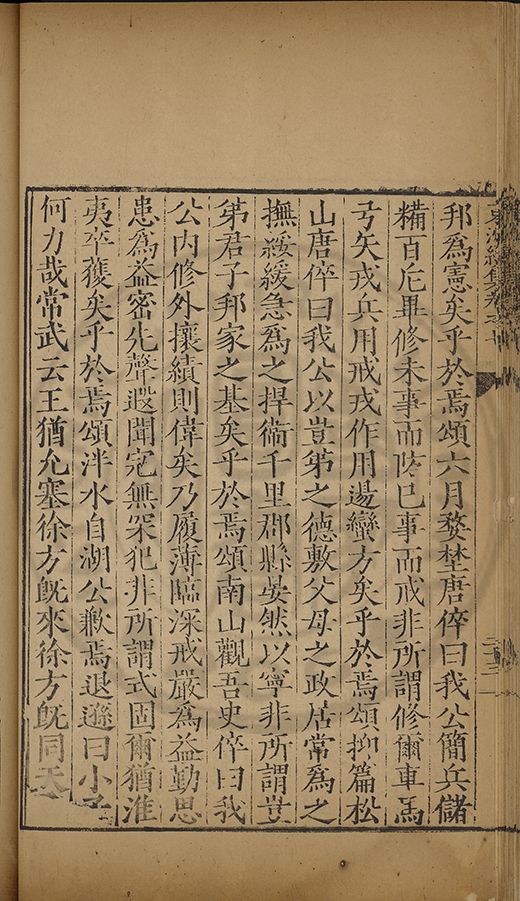 邦為憲矣乎於焉頌六月婺埜唐倅曰我公簡兵儲
糒百庀畢修未事而陰已事而戒非所謂修爾車馬
弓矢戎兵用戒戎作用逷蠻方矣乎於焉頌抑篇松
山唐倅曰我公以豈弟之德敷父母之政居常為之
撫綏緩急為之捍衞千里郡縣晏然以寧非所謂豈
弟君子邦家之基矣乎於焉頌南山觀吾史倅曰我
公內修外攘績則偉矣乃履薄臨深戒嚴為益勤思
患為益密先聲遐聞寇無深犯非所謂式固爾猶淮
夷卒獲矣乎於焉頌泮水自湖公歉焉退遜曰小子
何力哉常武云王猶允塞徐方旣來徐方旣同天
集卷之